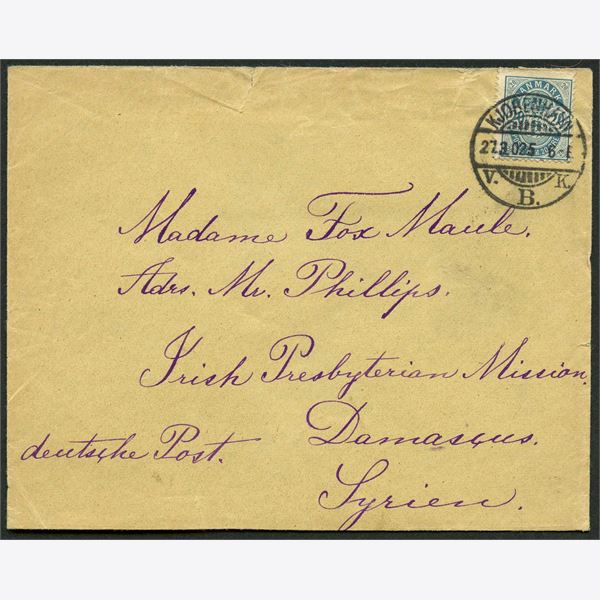 DANMARK
KJØBENHAVN
27.3.02 5 6-E
V. K.
B.
Madame Fox Maule.
Adrs. Mr. Phillips.
Irish Presbyterian Mission.
Damascus.
deutsche Post.
Syrien.